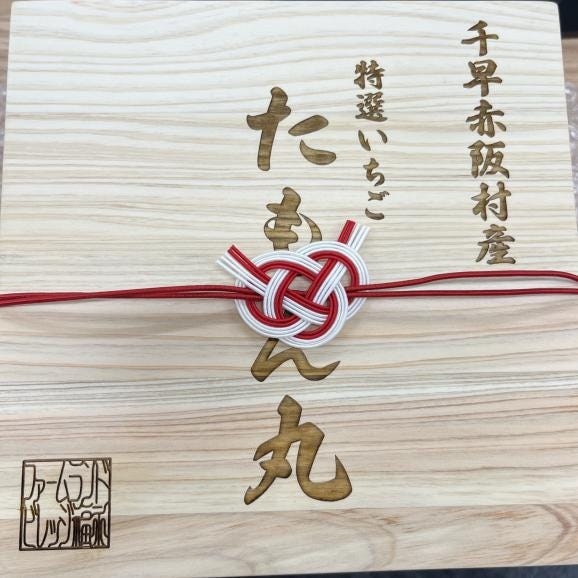 千早赤阪村産
特選いちご
たもん丸
ファームランド
ビレッジ